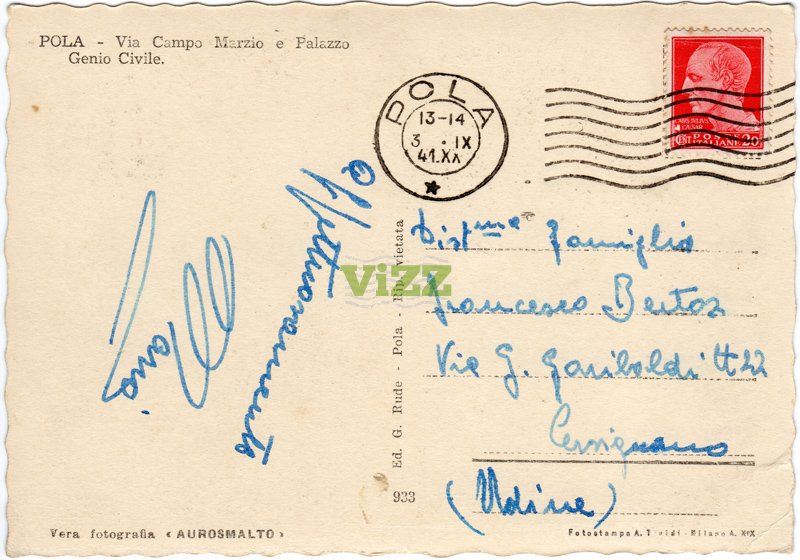 POLA - Via Campo Marzio e Palazzo
Genio Civile.
POLA
13-14
3 . IX
41.XX
CAIVS IVLIVS
CAESAR
CENT POSTE 20
ITALIANE
affettuosamente
Dist.ma Famiglia
Francesco Bertoz
Via G. Garibaldi # 22
Cervignano
(Udine)
ViZZ
Ed. G. Rude - Pola - Rip. vietata
933
Vera fotografia « AUROSMALTO »
Fotostampa A. - Milano A. XIX